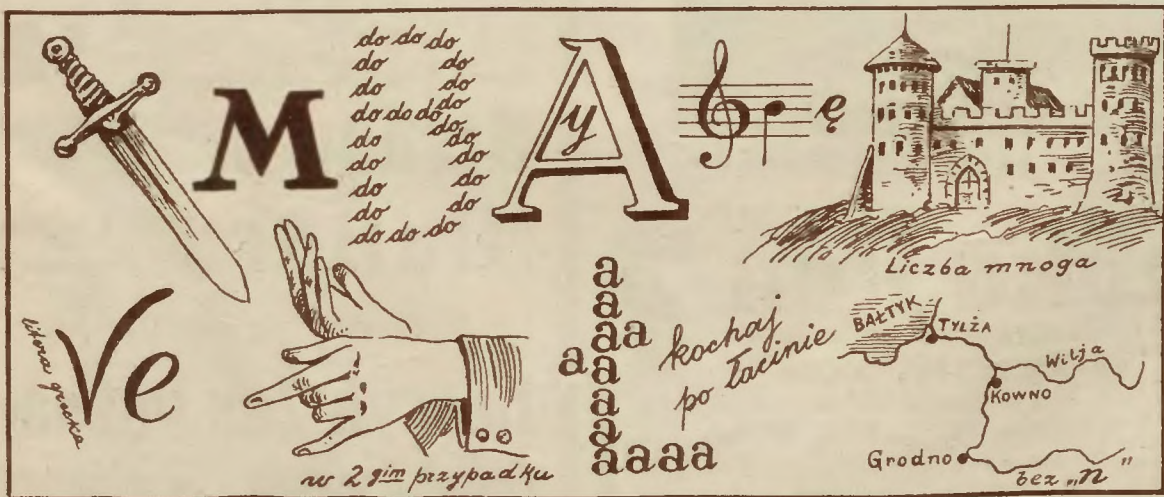 do do do
do do
do do
do do do do
do do do
do do
do do
do do
do do do
M
A
y
ę
Liczba mnoga
litera grecka
Ve
w 2gim przypadku
a
a
aa
aa
a
a
aaaa
kochaj
po łacinie
BAŁTYK
TYLŻA
Wilja
KOWNO
Grodno
bez „n"